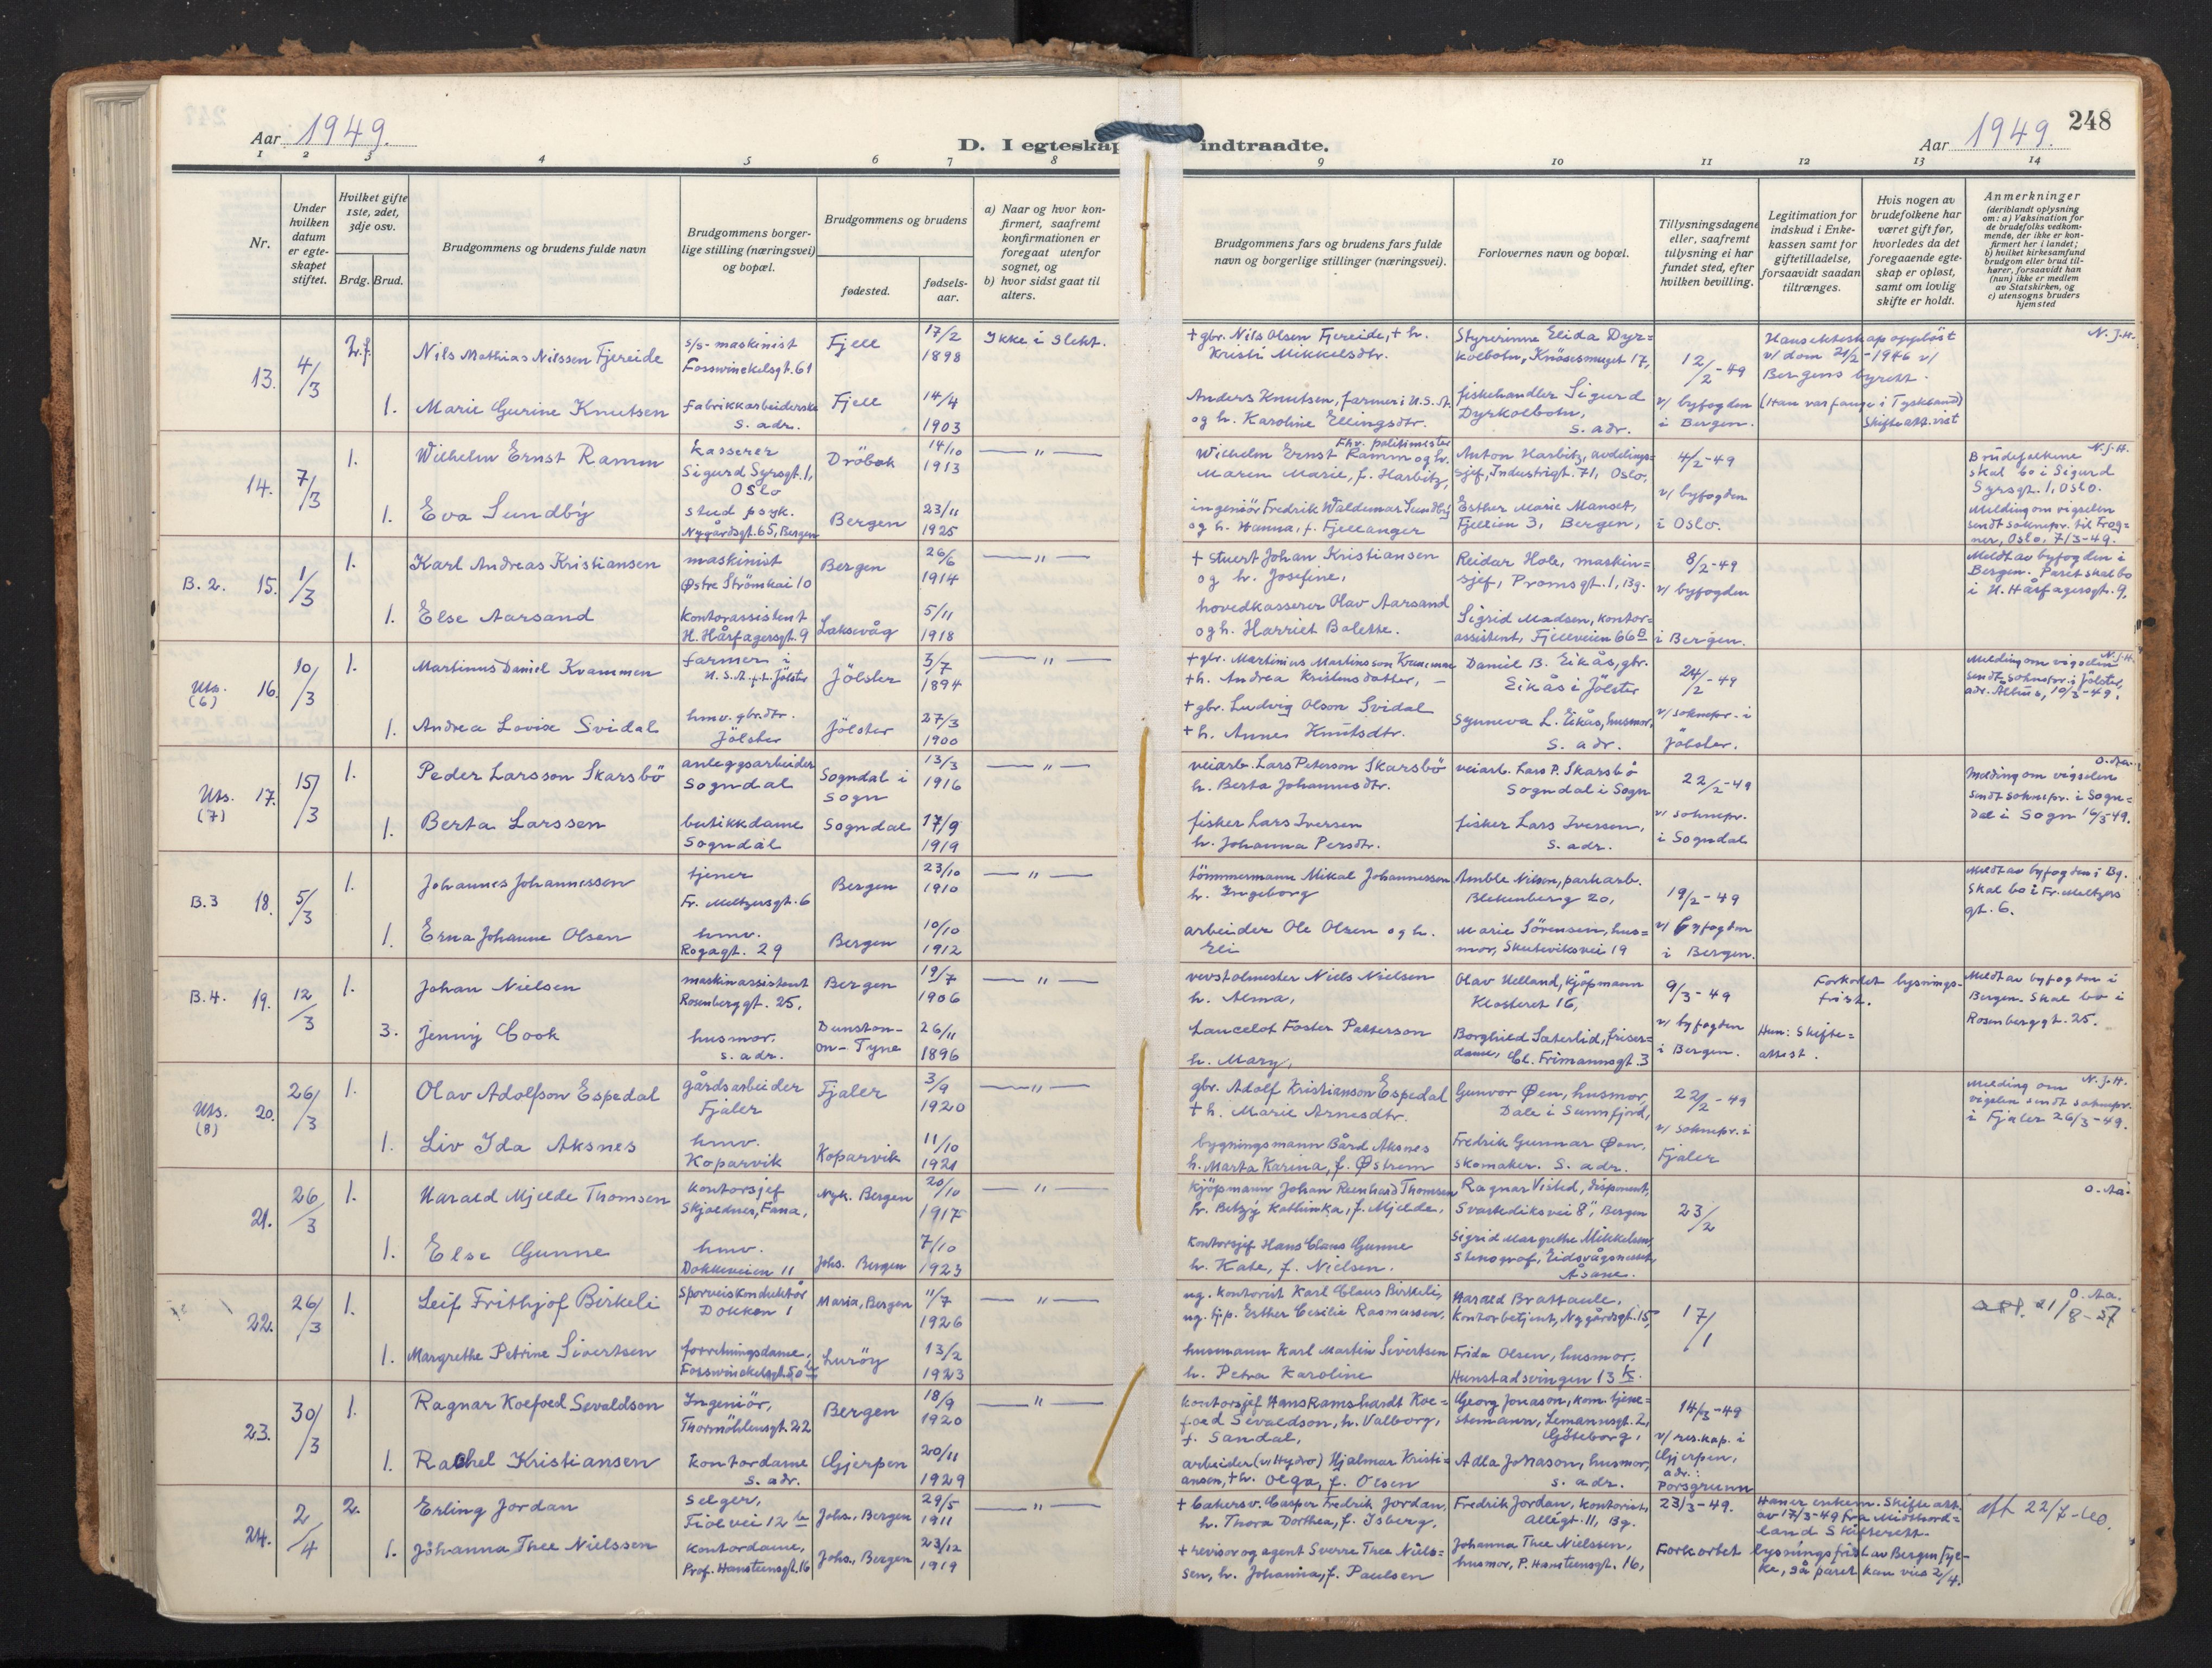 248
Aar 1949.
D. I egteskap indtraadte.
Aar 1949.
1 2 3 4 5 6 7 8 9 10 11 12 13 14
Nr.
Under hvilken datum er egteskapet stiftet.
Hvilket gifte 1ste, 2det, 3dje osv.
Brdg. Brud.
Brudgommens og brudens fulde navn
Brudgommens borgerlige stilling (næringsvei) og bopæl.
Brudgommens og brudens
fødested.
fødselsaar.
a) Naar og hvor konfirmert, saafremt konfirmationen er foregaat utenfor sognet, og
b) hvor sidst gaat til alters.
Brudgommens fars og brudens fars fulde navn og borgerlige stillinger (næringsvei).
Forlovernes navn og bopæl.
Tillysningsdagene eller, saafremt tillysning ei har fundet sted, efter hvilken bevilling.
Legitimation for indskud i Enkekassen samt for giftetilladelse, forsaavidt saadan tiltrænges.
Hvis nogen av brudefolkene har været gift før, hvorledes da det foregaaende egteskap er opløst, samt om lovlig skifte er holdt.
Anmerkninger
(deriblandt oplysning om: a) Vaksination for de brudefolks vedkommende, der ikke er konfirmert her i landet; b) hvilket kirkesamfund brudgom eller brud tilhører, forsaavidt han (hun) ikke er medlem av Statskirken, og c) utensogns bruders hjemsted
13. 4/3 2. f. Nils Mathias Nilssen Fjereide s/s-maskinist Fosswinckelsgt. 61 Fjell 17/2 1898 Ikke i slekt.
+ gbr. Nils Olsen Fjereide, + h. Kristi Mikkelsdtr. Styrerinne Elida Dyrkolbotn, Knøsesmuget 17, 12/2-49 v/ byfogden i Bergen.
Hans ekteskap oppløst v/ dom 21/2-1946 v/ Bergens byrett. (Han var fange i Tyskland) Skifteatt. vist
N.J.H.
1. Marie Gurine Knutsen fabrikkarbeiderske s. adr. Fjell 14/4 1903
Anders Knutsen, farmer i U.S.A. og h. Karoline Ellingsdtr. fiskehandler Sigurd Dyrkolbotn, s. adr.
14. 7/3 1. Wilhelm Ernst Ramm kasserer Sigurd Syrsgt. 1, Oslo Dröbak 14/10 1913 — " —
Wilhelm Ernst Ramm Fhv. politimester og h. Maren Marie, f. Harbitz, Anton Harbitz, avdelingssjef, Industrigt. 71, Oslo, 4/2-49 v/ byfogden i Oslo.
N.J.H.
Brudefolkene skal bo i Sigurd Syrsgt. 1, Oslo. Melding om vigselen sendt soknepr. til Frogner, Oslo, 7/3-49.
1. Eva Sundby stud psyk. Nygårdsgt. 65, Bergen Bergen 23/11 1925
ingeniör Fredrik Waldemar Sundby og h. Hanna, f. Fjellanger Esther Marie Manset, Fjellien 3, Bergen,
B. 2. 15. 1/3 1. Karl Andreas Kristiansen maskinist Østre Strömkai 10 Bergen 26/6 1914 — " —
+ stuert Johan Kristiansen og h. Josefine, Reidar Hole, maskinsjef, Promsgt. 1, Bg. 8/2-49 v/ byfogden i Bergen.
Meldt av byfogden i Bergen. Paret skal bo i H. Hårfagersgt. 9.
1. Else Aarsand kontorassistent H. Hårfagersgt. 9 Laksevåg 5/11 1918
hovedkasserer Olav Aarsand og h. Harriet Balette. Sigrid Madsen, kontorassistent, Fjellveien 66 B
Uts. (6) 16. 10/3 1. Martinus Daniel Kvammen farmer i U.S.A. f.t. Jölster Jölster 3/7 1894 — " —
+ gbr. Martinius Martinsson Kvammen + h. Andrea Kristensdatter, Daniel B. Eikås, gbr. Eikås i Jölster 24/2-49 v/ soknepr. i Jölster.
N.J.H.
Melding om vigselen sendt soknepr. i Jölster, adr. Ålhus, 10/3-49.
1. Andrea Lovise Svidal hmv. gbr.dtr. Jölster Jölster 27/3 1900
+ gbr. Ludvig Olson Svidal + h. Anne Knutsdtr. Synneva L. Eikås, husmor, s. adr.
Uts. (7) 17. 15/3 1. Peder Larsson Skarsbö anleggsarbeider Sogndal Sogndal i Sogn 13/3 1916 — " —
veiarb. Lars Peterson Skarsbö h. Berta Johannesdtr. veiarb. Lars P. Skarsbö Sogndal i Sogn 22/2-49 v/ soknepr. i Sogndal
O. Aa.
Melding om vigselen sendt soknepr. i Sogndal i Sogn 16/3-49.
1. Berta Larssen butikkdame Sogndal Sogndal 17/9 1919
fisker Lars Iversen h. Johanna Persdtr. fisker Lars Iversen, s. adr.
B. 3 18. 5/3 1. Johannes Johannessen tjener Fr. Meltzersgt. 6 Bergen 23/10 1910 — " —
tömmermann Mikal Johannessen h. Ingeborg Amble Nilsen, parkarb. Blekenberg 20, 19/2-49 v/ byfogden i Bergen.
Meldt av byfogden i Bg. Skal bo i Fr. Meltzers gt. 6.
1. Erna Johanne Olsen hmv. Rogagt. 29 Bergen 10/10 1912
arbeider Ole Olsen og h. Eli Marie Sörensen, husmor, Skuteviksvei 19
B. 4. 19. 12/3 1. Johan Nielsen maskinassistent Rosenberggt. 25, Bergen 19/7 1906 — " —
verstolmester Niels Nielsen h. Alma, Olav Helland, kjöpmann Klosteret 16, 9/3-49 v/ byfogden i Bergen.
Forkortet lysningsfrist.
Meldt av byfogden i Bergen. Skal bo i Rosenberggt. 25.
3. Jenny Cook husmor, s. adr. Dunston-on-Tyne 26/11 1896
Lancelot Foster Patterson h. Mary, Borghild Sæterlid, friserdame, Cl. Frimannsgt. 3 Hun: Skifteattest.
Uts. (8) 20. 26/3 1. Olav Adolfson Espedal gårdsarbeider Fjaler Fjaler 3/9 1920 — " —
gbr. Adolf Kristianson Espedal + h. Marie Arnesdtr. Gunvor Øen, husmor, Dale i Sunnfjord, 22/2-49 v/ soknepr. i Fjaler
N.J.H.
Melding om vigslen sendt soknepr. i Fjaler 26/3-49.
1. Liv Ida Aksnes hmv. Koparvik Koparvik 11/10 1921
bygningsmann Bård Aksnes h. Marta Karina, f. Østrem Fredrik Gunnar Øen, skomaker. s. adr.
21. 26/3 1. Harald Mjelde Thomsen kontorsjef Skjoldnes, Fana, Nyk. Bergen 20/10 1917 — " —
kjöpmann Johan Reinhard Thomsen h. Betzy Kathinka, f. Mjelde, Ragnar Visted, disponent, Svartediksvei 8, Bergen 23/2
O. Aa.
1. Else Gunne hmv. Dokkeveien 11 Johs. Bergen 7/10 1923
kontorsjef Hans Claus Gunne h. Kate, f. Nielsen. Sigrid Margrethe Mikkelsen, stenograf, Eidsvågsneset, Åsane.
22. 26/3 1. Leif Frithjof Birkeli sporveiskonduktör Dokken 1 Maria, Bergen 11/7 1926 — " —
ug. kontorist Karl Claus Birkeli, ug. hjp. Esther Cecilie Rasmussen, Harald Brattaule, kontorbetjent, Nygårdsgt. 15, 17/1
O. Aa.
21/8-57
1. Margrethe Petrine Sivertsen forretningsdame, Fosswinckelsgt. 50 Lurøy 13/2 1923
husmann Karl Martin Sivertsen h. Petra Karoline Frida Olsen, husmor, Hunstadsvingen 13
23. 30/3 1. Ragnar Koefoed Sevaldson Ingeniör, Thormöhlensgt. 22 Bergen 18/9 1920 — " —
kontorsjef Hans Ramshardt Koefoed Sevaldson, h. Valborg, f. Sandal, Georg Jonason, kom. tjenestemann, Lemannsgt. 2, Göteborg, 14/3-49 v/ res. kap. i Gjerpen, adr.: Porsgrunn
1. Rachel Kristiansen kontordame s. adr. Gjerpen 20/11 1929
arbeider (v/ Hydro) Hjalmar Kristiansen, + h. Olga, f. Olsen Adla Jonason, husmor, s. adr.
24. 2/4 2. Erling Jordan selger, Fiolvei 12 Johs., Bergen 29/5 1911 — " —
+ bakersv. Casper Fredrik Jordan, h. Thora Dorthea, f. Isberg, Fredrik Jordan, kontorist, Allégt. 11, Bg. 23/3-49.
Han er enkem. Skifteatt. av 17/3-49 fra Midthordland Skifterett.
att 22/7-60.
1. Johanna Thee Nielssen kontordame, Prof. Hansteensgt. 16 Johs., Bergen 23/12 1919
+ revisor og agent Sverre Thee Nielssen, h. Johanna, f. Paulsen Johanna Thee Nielssen, husmor, P. Hansteensgt. 16,
Forkortet lysningsfrist av Bergen Fylke, så paret kan vies 2/4.